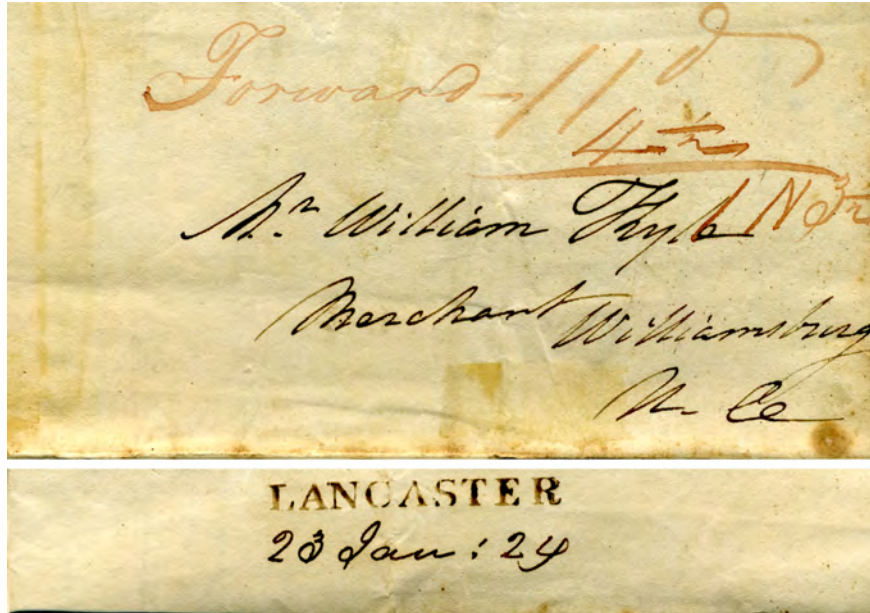 Forward - 11d
4½
1 N 3½
Mr. William Kyle
Merchant Williamsburg
U- Ca
LANCASTER
23 Jan : 24